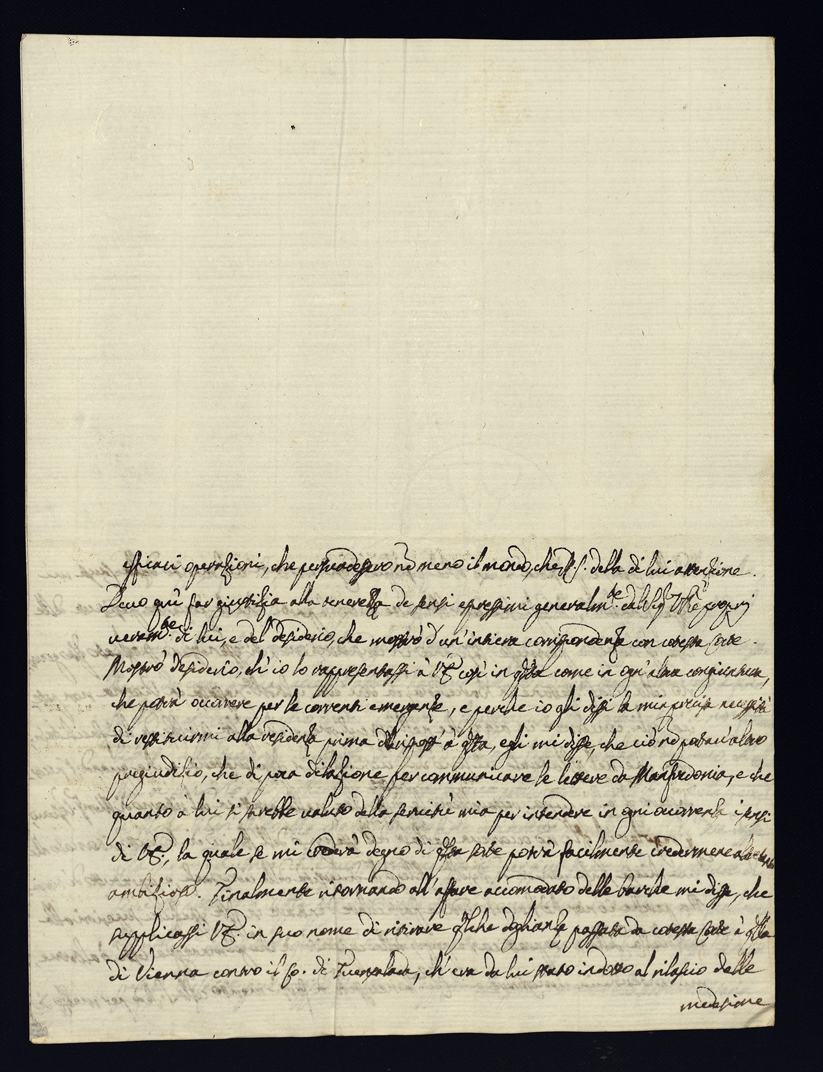 efficaci operazioni, che persuadessero nõ meno il mondo, che della di lui attenzione.
Devo quì far giustizia alla tenerezza de sensi espressimi generalmte. dal Sigr. Vice proprij
veramte. di lui, e del desiderio, che mostrò d'un'intiera corrispondenza con cotesta Corte.
Mostrò desiderio, ch'io lo rappresentassi à V.E. così in qsta come in ogn'altra congiuntura,
che potrà occorrere per le correnti emergenze, e perche io gli dissi la mia precisa necessità
di restituirmi alla residenza prima di à qsta, egli mi disse, che ciò nõ portava altro
pregiuditio, che di poca dilazione per communicare le lettere da Manfredonia, e che
quanto à lui si sarebbe valuto della servitù mia per intendere in ogni occorrenza i sensi
di V.E., la quale se mi crederà degno di qsta sorte potrà facilmente credermene
ambizioso. Finalmente ritornando all'affare accomodato delle barche mi disse, che
supplicassi V.E. in suo nome di ritirare qlche doglianza passata da cotesta Corte à qlla
di Vienna contro il Co. di Fuensalada, ch'era da lui stato indotto al rilascio delle
medesime